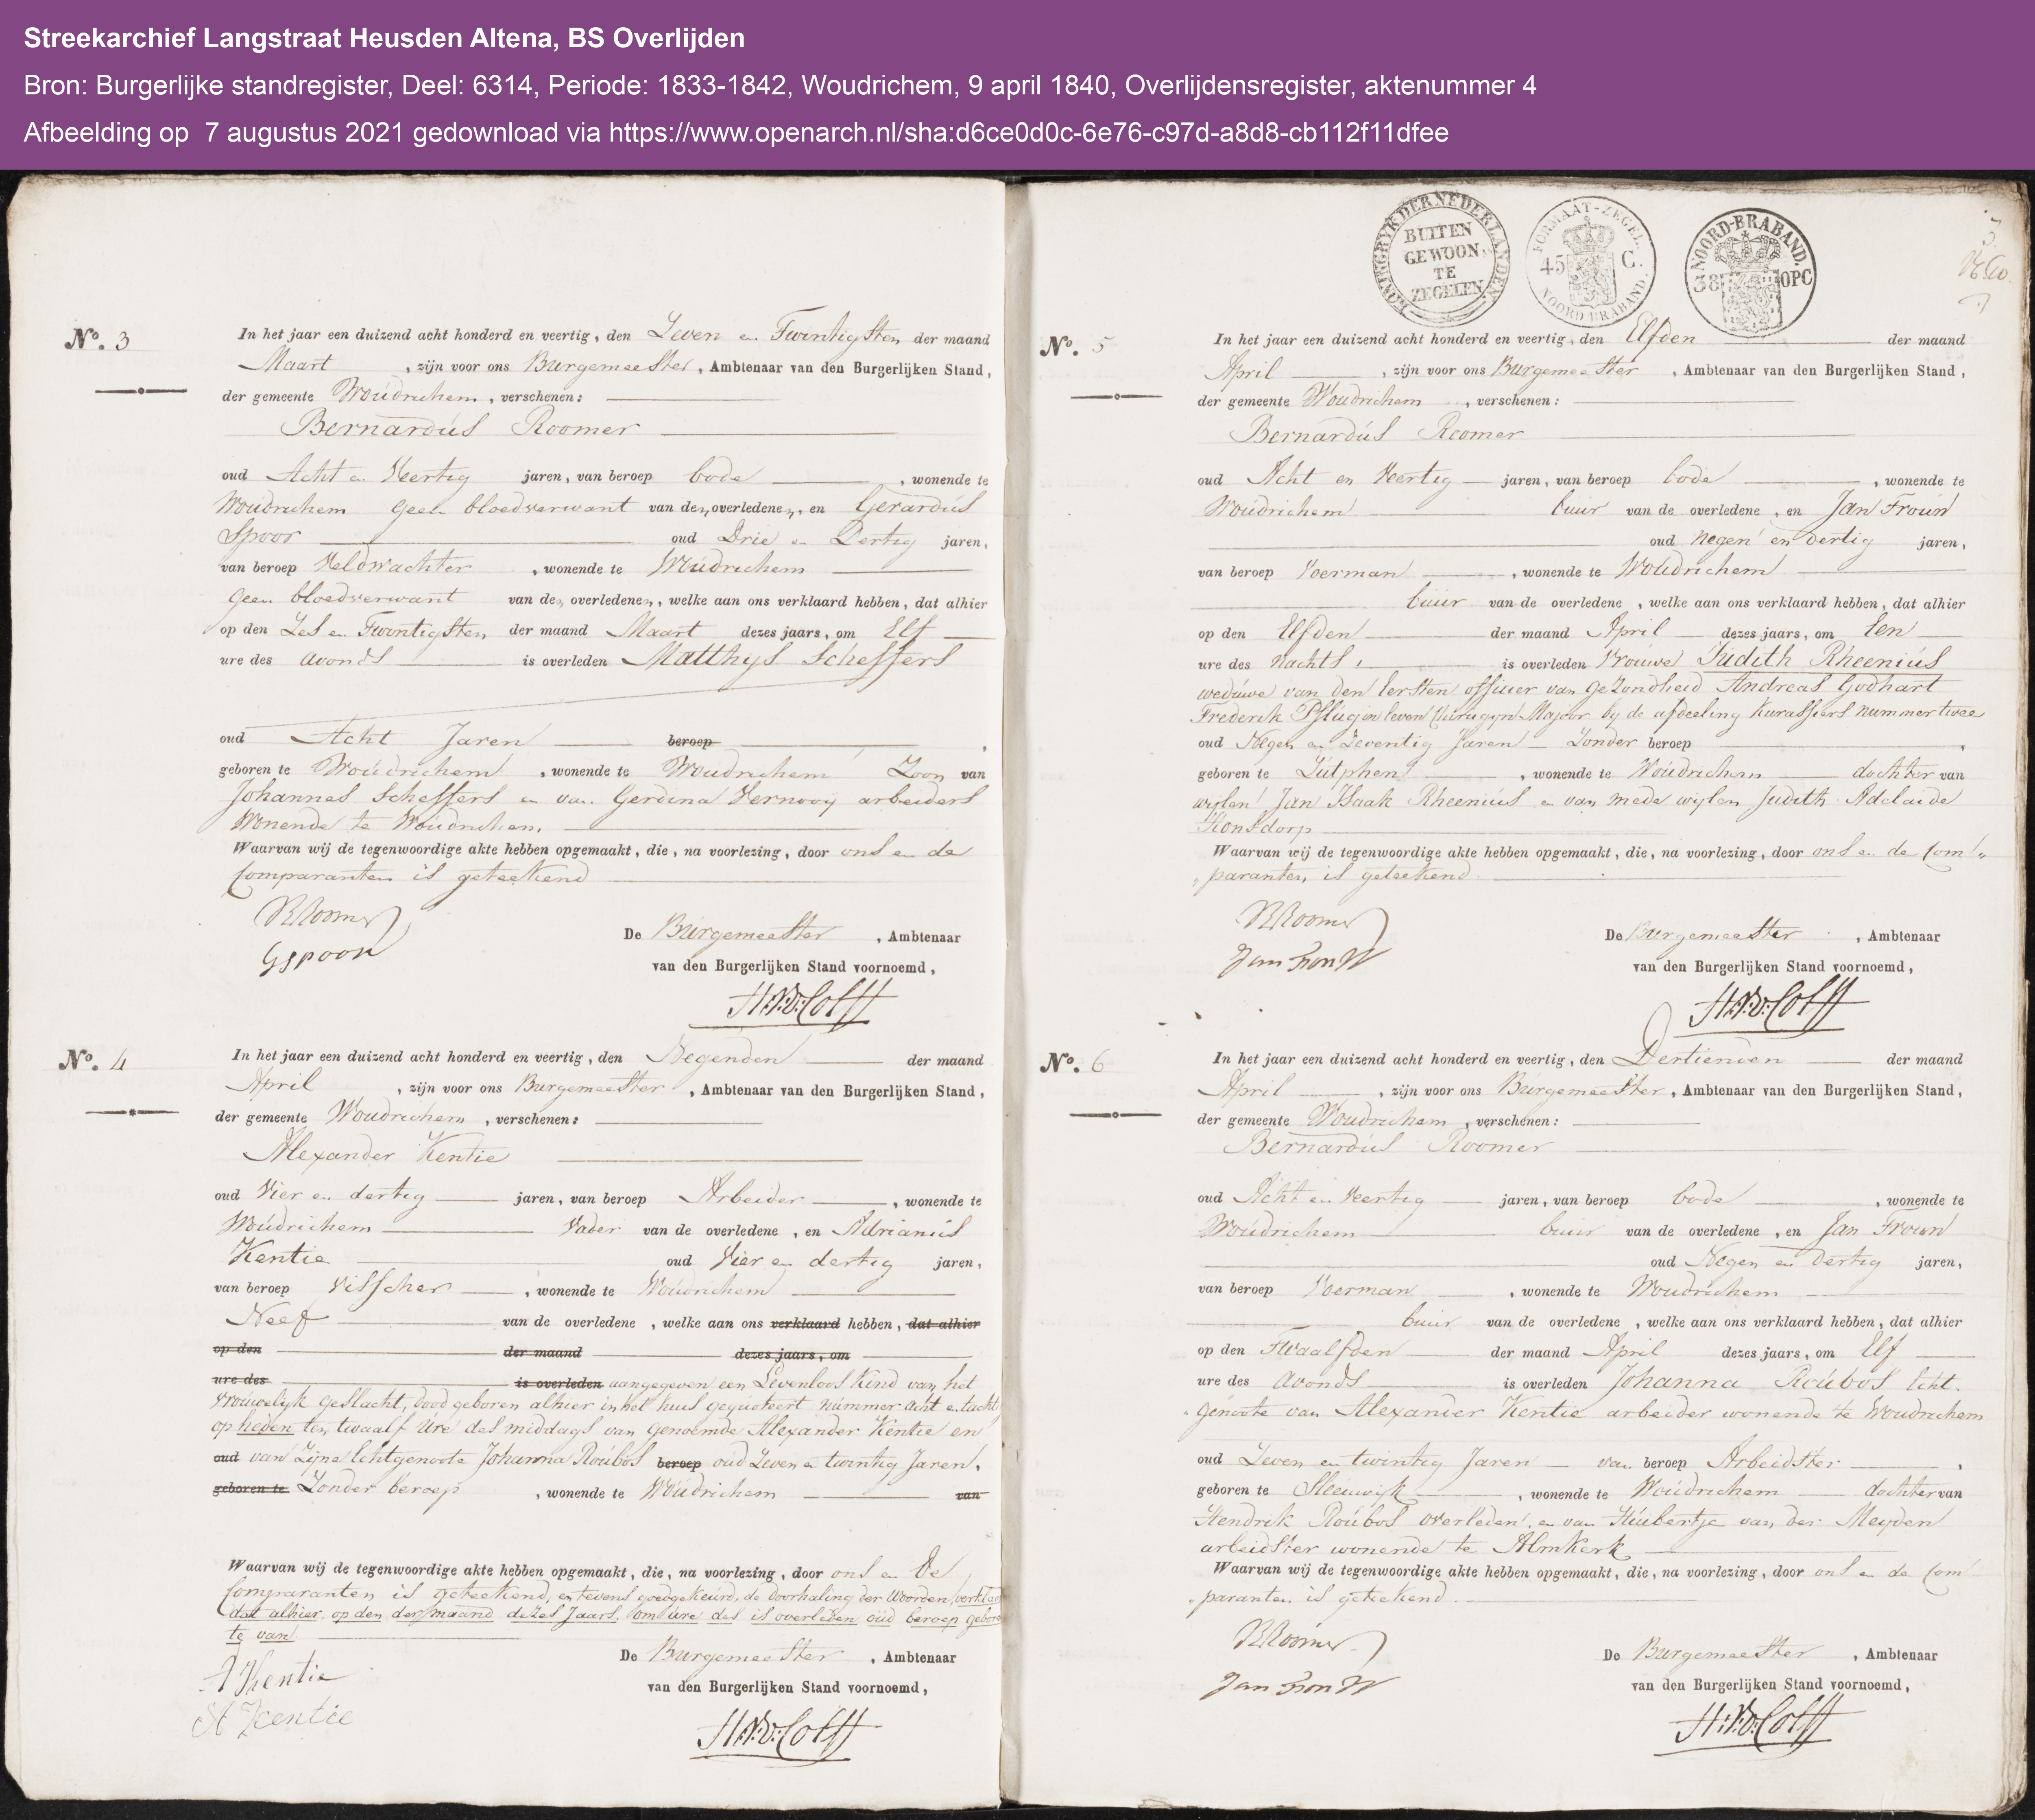 Streekarchief Langstraat Heusden Altena, BS Overlijden
Bron: Burgerlijke standregister, Deel: 6314, Periode: 1833-1842, Woudrichem, 9 april 1840, Overlijdensregister, aktenummer 4
Afbeelding op 7 augustus 2021 gedownload via https://www.openarch.nl/sha:d6ce0d0c-6e76-c97d-a8d8-cb112f11dfee
No. 3
In het jaar een duizend acht honderd en veertig, den Zeven en Twintigsten der maand
Maart, zijn voor ons Burgemeester, Ambtenaar van den Burgerlijken Stand,
der gemeente Woúdrichem, verschenen:
Bernardús Roomer
oud Acht en Veertig jaren, van beroep bode, wonende te
Woúdrichem geen bloedverwant van den overledenen, en Gerardús
Spoor oud Drie en Dertig jaren,
van beroep Veldwachter, wonende te Woúdrichem
geen bloedverwant van den overledenen, welke aan ons verklaard hebben, dat alhier
op den Zes en Twintigsten der maand Maart dezes jaars, om Elf
ure des avonds is overleden Matthijs Scheffers
oud Acht Jaren beroep
geboren te Woúdrichem, wonende te Woúdrichem Zoon van
Johannes Scheffers en van Gerdina Vernooij arbeiders
Wonende te Woúdrichem.
Waarvan wij de tegenwoordige akte hebben opgemaakt, die, na voorlezing, door ons en de
Comparanten is geteekend
BRoomer
GSpoor
De Burgemeester, Ambtenaar
van den Burgerlijken Stand voornoemd,
No. 4
In het jaar een duizend acht honderd en veertig, den Negenden der maand
April, zijn voor ons Burgemeester, Ambtenaar van den Burgerlijken Stand,
der gemeente Woúdrichem, verschenen:
Alexander Kentie
oud Vier en dertig jaren, van beroep Arbeider, wonende te
Woúdrichem Vader van de overledene, en Adrianús
Kentie oud Vier en dertig jaren,
van beroep Visscher, wonende te Woúdrichem
Neef van de overledene, welke aan ons verklaard hebben, dat alhier
op den der maand dezes jaars, om
ure des is overleden aangegeven een Levenloos Kind van het
vrouwelijk geslacht, dood geboren alhier in het huis gequoteert nummer acht en tachtig
op heden ten twaalf úre des middags van genoemde Alexander Kentie en
oud van Zijne Echtgenoote Johanna Roúbos beroep oud Zeven en twintig Jaren,
geboren te Zonder beroep, wonende te Woúdrichem van
Waarvan wij de tegenwoordige akte hebben opgemaakt, die, na voorlezing, door ons en De
Comparanten is geteekend, en tevens goedgekeurd, de doorhaling der woorden, verklaard
dat alhier, op den der maand dezes Jaars, om úre des is overleden oúd beroep geboren
te van
De Burgemeester, Ambtenaar
van den Burgerlijken Stand voornoemd,
A Kentie
A Kentie
KONINGRYK DER NEDERLANDEN
BUITEN
GEWOON
TE
ZEGELEN
FORMAAT-ZEGEL.
45 C.
NOORD BRABAND.
NOORD-BRABAND.
38 OPC
No. 5
In het jaar een duizend acht honderd en veertig, den Elfden der maand
April, zijn voor ons Burgemeester, Ambtenaar van den Burgerlijken Stand,
der gemeente Woúdrichem, verschenen:
Bernardús Roomer
oud Acht en Veertig jaren, van beroep bode, wonende te
Woúdrichem buur van de overledene, en Jan Froún
oud Negen en dertig jaren,
van beroep Voerman, wonende te Woúdrichem
buur van de overledene, welke aan ons verklaard hebben, dat alhier
op den Elfden der maand April dezes jaars, om Een
ure des nachts, is overleden Vrouwe Júdith Rheeniús
wedúwe van den Eersten officier van gezondheid Andreas Godhart
Frederik Pflúg in leven Chirugyn Majoor bij de afdeeling Kurassiers nummer twee
oud Negen en Zeventig Jaren Zonder beroep
geboren te Zútphen, wonende te Woúdrichem dochter van
wijlen Jan Isaak Rheeniús en van mede wijlen Judith Adelaide
Honsdorp
Waarvan wij de tegenwoordige akte hebben opgemaakt, die, na voorlezing, door ons en de Com"
"paranten is geteekend
BRoomer
De Burgemeester, Ambtenaar
van den Burgerlijken Stand voornoemd,
No. 6
In het jaar een duizend acht honderd en veertig, den Dertienden der maand
April, zijn voor ons Búrgemeester, Ambtenaar van den Burgerlijken Stand,
der gemeente Woúdrichem, verschenen:
Bernardús Roomer
oud Acht en Veertig jaren, van beroep bode, wonende te
Woúdrichem buur van de overledene, en Jan Froún
oud Negen en Dertig jaren,
van beroep Voerman, wonende te Woúdrichem
buur van de overledene, welke aan ons verklaard hebben, dat alhier
op den Twaalfden der maand April dezes jaars, om Elf
ure des Avonds is overleden Johanna Roúbos Echt.
"genoote van Alexander Kentie arbeider wonende te Woudrichem
oud Zeven en twintig Jaren van beroep Arbeidster,
geboren te Sleeuwijk, wonende te Woúdrichem dochter van
Hendrik Roúbos overleden, en van Húibertje van der Meyden
arbeidster wonende te Almkerk
Waarvan wij de tegenwoordige akte hebben opgemaakt, die, na voorlezing, door ons en de Com"
"paranten is geteekend.
BRoomer
De Burgemeester, Ambtenaar
van den Burgerlijken Stand voornoemd,